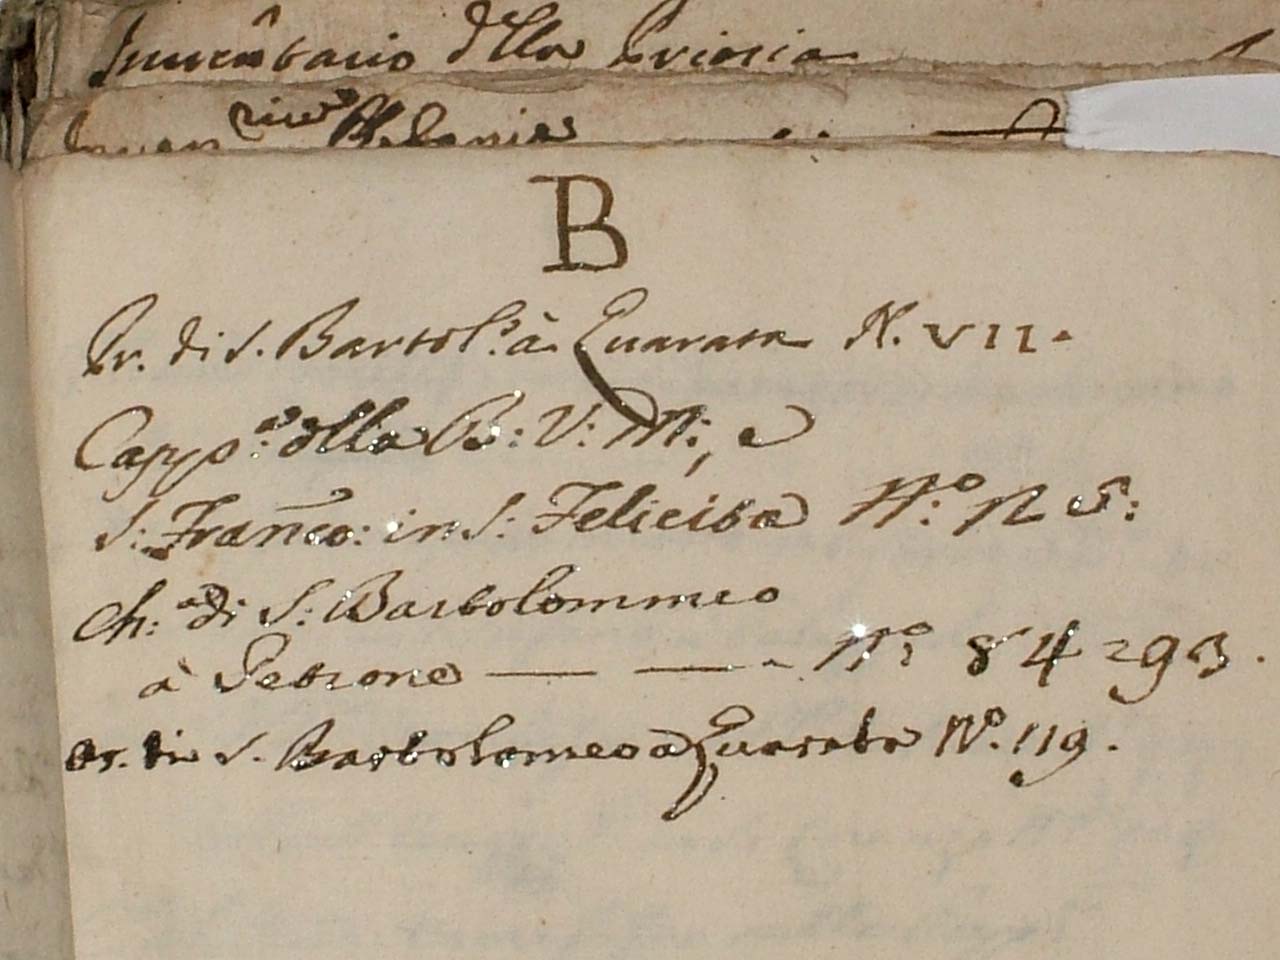 Inventario dlla Prioria
B
Pr. di S. Bartol.º à Quarata N. VII.
Capp.ª dlla B: V: M:, e
S: Franco: in S: Felicita N.º 125:
Ch:ª di S: Bartolommeo
à Petrone — — N.º 84 = 93.
Pr. di S. Bartolomeo a Quarata N.º 119.